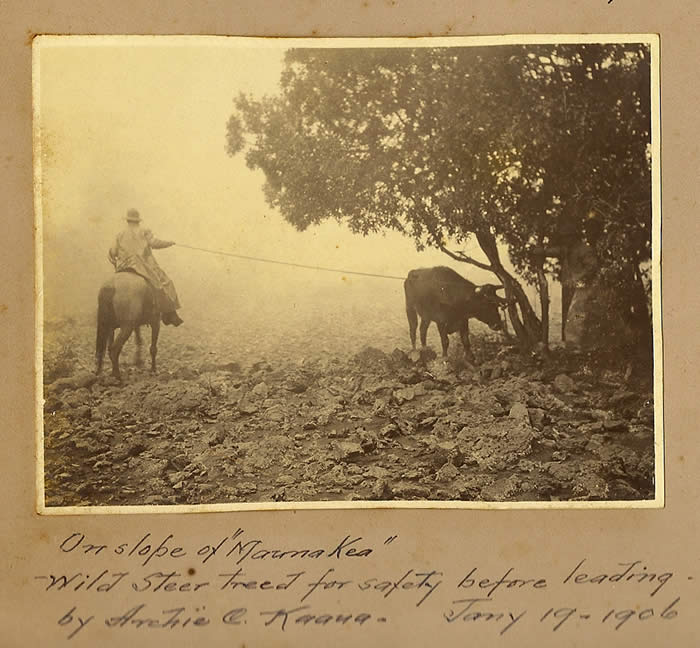 On slope of "Mauna Kea"
- Wild Steer treed for safety before leading -
by Archie C. Kaaua - Jany 19 - 1906